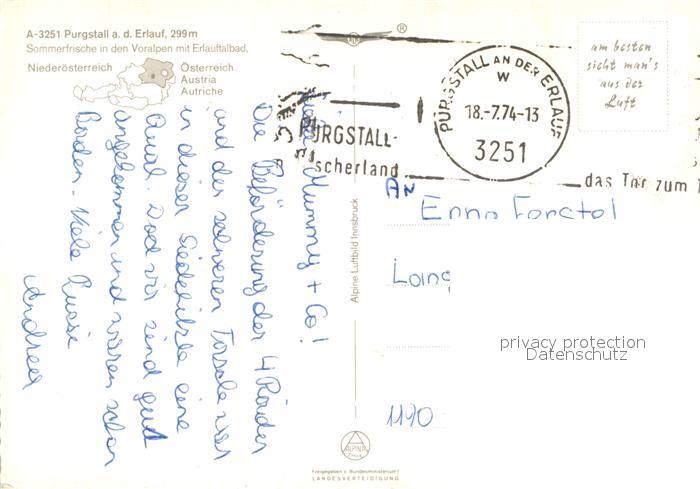 A-3251 Purgstall a. d. Erlauf, 299 m
Sommerfrische in den Voralpen mit Erlauftalbad,
Niederösterreich
Österreich
Austria
Autriche
Mummy + Co!
Die Beförderung der 4 Räder
und der schweren Tasche war
in dieser Siedehitze eine
Qual. Doch wir sind gut
angekommen und waren schon
baden. Viele Bussi
Andrea
Alpine Luftbild Innsbruck
PURGSTALL-
scherland
das Tor zum
PURGSTALL AN DER ERLAUF
W
18.-7.74-13
3251
am besten
sieht man's
aus der
Luft
An
Lain
1190
privacy protection
Datenschutz
ALPINE
Freigegeben v. Bundesministerium f.
LANDESVERTEIDIGUNG